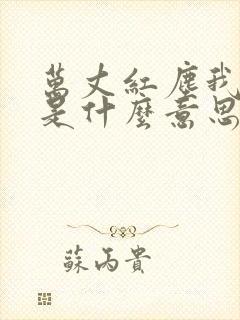 萬丈紅塵我
是什麼意思
蘇丙貴